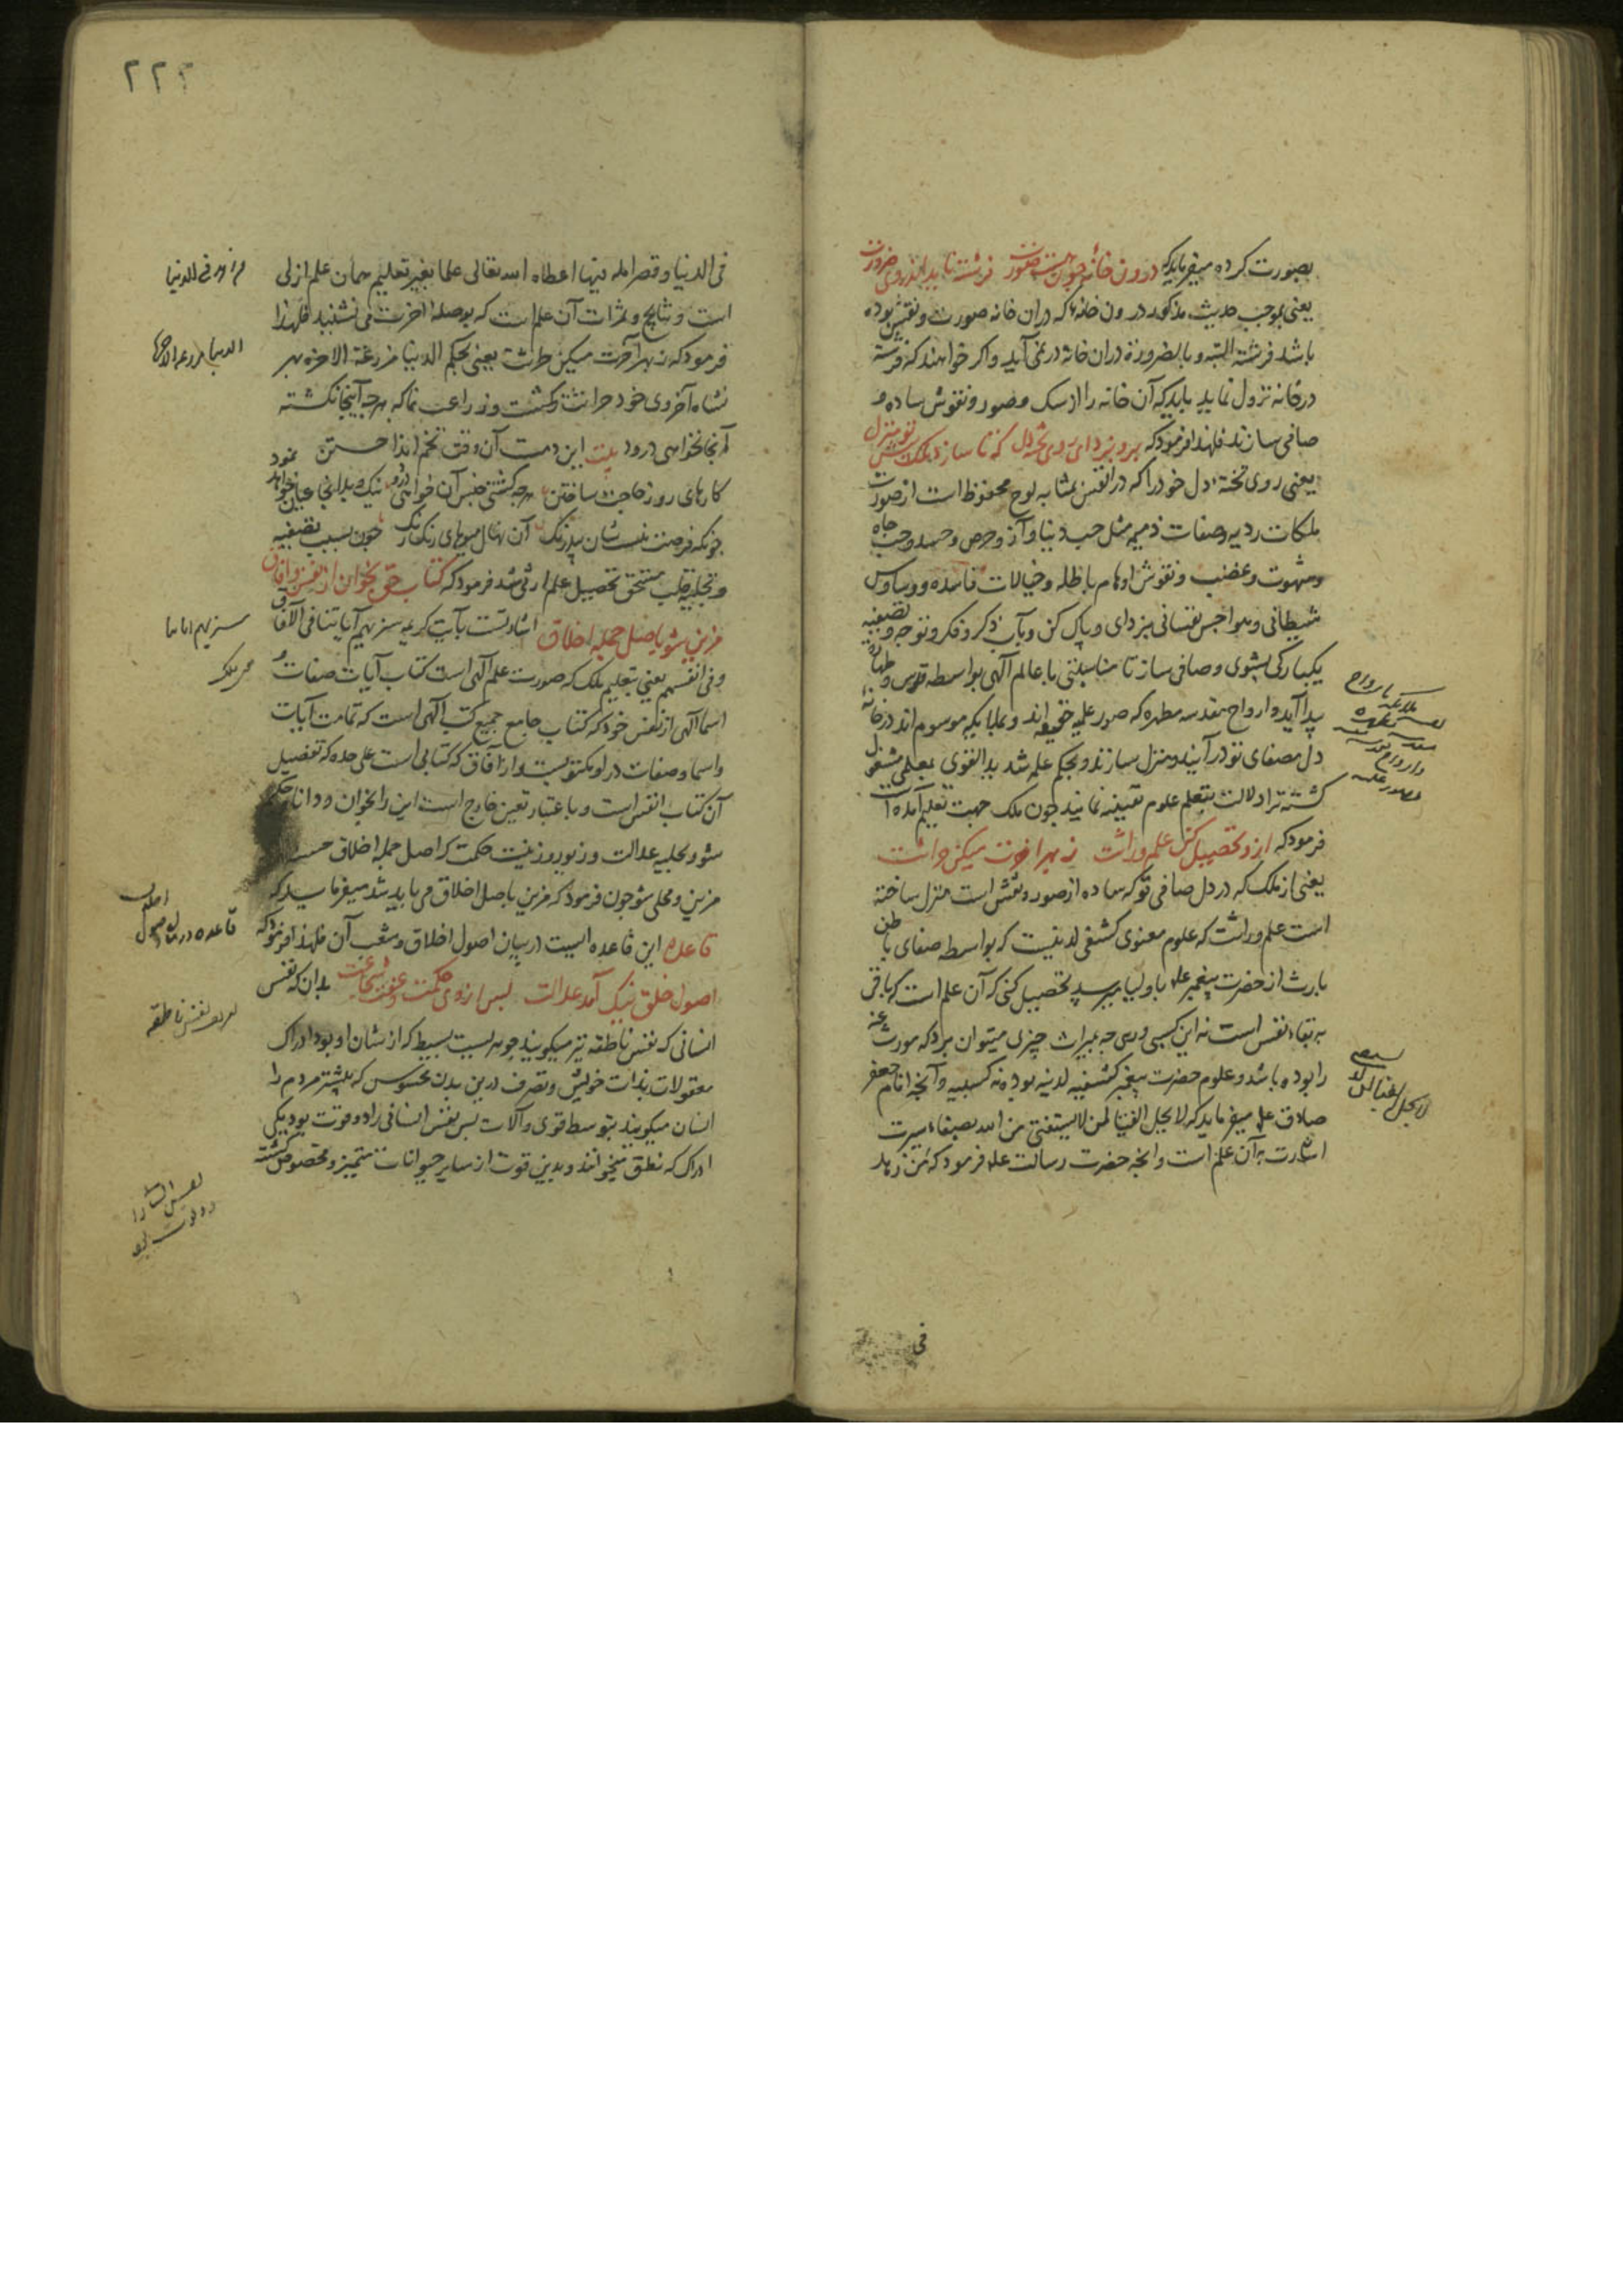 بصورت کرده میفرماید که درون خانه چون هست صورت فرشته ناید اندر وی ضرورت
یعنی بموجب حدیث مذکور درون خانه که دران خانه صورت و نقش بوده
باشد فرشته البته و بالضرورة دران خانه در نمی آید و اکر خواهند که فرشته
در خانه نزول نماید باید که آن خانه را از سک و صور و نقوش ساده و
صافی سازند فلهذا فرمود که برو بزدای روی تخته دل که تا سازد ملک پیش تو منزل
یعنی روی تخته دل خود را که در انفس بمثابه لوح محفوظ است از صورت
ملکات ردیه و صفات ذمیمه مثل حب دنیا و آز و حرص و حسد و حب جاه
و شهوت و غضب و نقوش اوهام باطله و خیالات فاسده و وساوس
شیطانی و هواجس نفسانی بزدای و پاک کن و بآب ذکر و فکر و توجه و تصفیه
یکبارکی بشوی و صافی ساز تا مناسبتی با عالم الهی بواسطه قدس و طهارة
پیدا آید و ارواح مقدسه مطهره که صور علمیه حقیقه اند و بملایکه موسوم اند در خانه
دل مصفای تو در آیند و منزل سازند و بحکم علمه شدید القوی بمعلمی مشغول
کشته ترا دلالت بتعلم علوم یقینیه نمایند چون ملک جهت تعلیم آمده است
فرمود که ازو تحصیل کن علم وراثت ز بهر آخرت میکن حراثت
یعنی از ملک که در دل صافی تو که ساده از صور و نقش است منزل ساخته
است علم وراثت که علوم معنوی کشفی لدنیست که بواسطه صفای باطن
بارث از حضرت پیغمبر علم باولیا میرسد تحصیل کنی که آن علم است که باقی
به بقاء نفس است نه این کسبی و رسمی چه بمیراث چیزی میتوان برد که مورث عنه
را بوده باشد و علوم حضرت پیغمبر کشفیه لدنیه بوده نه کسبیه و آنچه امام جعفر
صادق علم میفرماید که لا یحل الفتیا لمن لا یستفتی من الله بصفاء سیرت
اشارت به آن علم است و انچه حضرت رسالت علم فرمود که من زهد
فی
ملائکه بارواح
لا یحل الفتیا لمن لا
۲۲۳
فی الدنیا و قصر امله فیها اعطاه الله تعالی علما بغیر تعلیم همان علم ازلی
است و نتایج و ثمرات آن علم است که بوصله آخرت می نشنید فلهذا
فرمود که ز بهر آخرت میکن حراثت یعنی بحکم الدنیا مزرعة الاخره بهر
نشاه آخروی خود حراثت و کشت و زراعت نما که هر چه آنجا نکشته
آنجا نخواهی درود بیت این دمت آن وقت تخم انداختن نمود
کارهای روز حاجت ساختن هر چه کشتی جنس آن خواهی درود نیک و بد آنجا عیان خواهد
چونکه فرصت هست بنشان بیدرنک آن نهال میوهای رنک رنک چون بسبب تصفیه
و تجلیه قلب مستحق تحصیل علم ارثی شد فرمود که کتاب حق بخوان از نفس و آفاق
مزین شو باصل جمله اخلاق اشارتست بآیت کریمه سنریهم آیاتنا فی الآفاق
و فی انفسهم یعنی بتعلیم ملک که صورت علم الهی است کتاب آیات صفات و
اسما الهی از نفس خود که کتاب جامع جمیع کتب الهی است که تمامت آیات
و اسما و صفات در او مکتوبست و از آفاق که کتابی است علی حده که تفصیل
آن کتاب انفس است و باعتبار تعین خارج است این را بخوان و دانا و حکیم
شو و بحلیه عدالت و زیور و زینت حکمت که اصل جمله اخلاق حسنه
مزین و محلی شو چون فرمود که مزین باصل اخلاق می باید شد میفرماید که
قاعده این قاعده ایست در بیان اصول اخلاق و شعب آن فلهذا فرمود که
اصول خلق نیک آمد عدالت پس از وی حکمت و عفت شجاعت بدان که نفس
انسانی که نفس ناطقه نیز میکویند جوهریست بسیط که از شان او بود ادراک
معقولات بذات خویش و تصرف درین بدن محسوس که بیشتر مردم را
انسان میکویند بتوسط قوی و آلات پس نفس انسانی را دو قوت بود یکی
ادراک که نطق میخوانند و بدین قوت از سایر حیوانات متمیز و مخصوص کشته
من زهد فی الدنیا
الدنیا مزرعة الاخرة
سنریهم ایاتنا
قاعده در بیان اصول
تعریف نفس ناطقه
نفس انسانی را
دو قوت بود